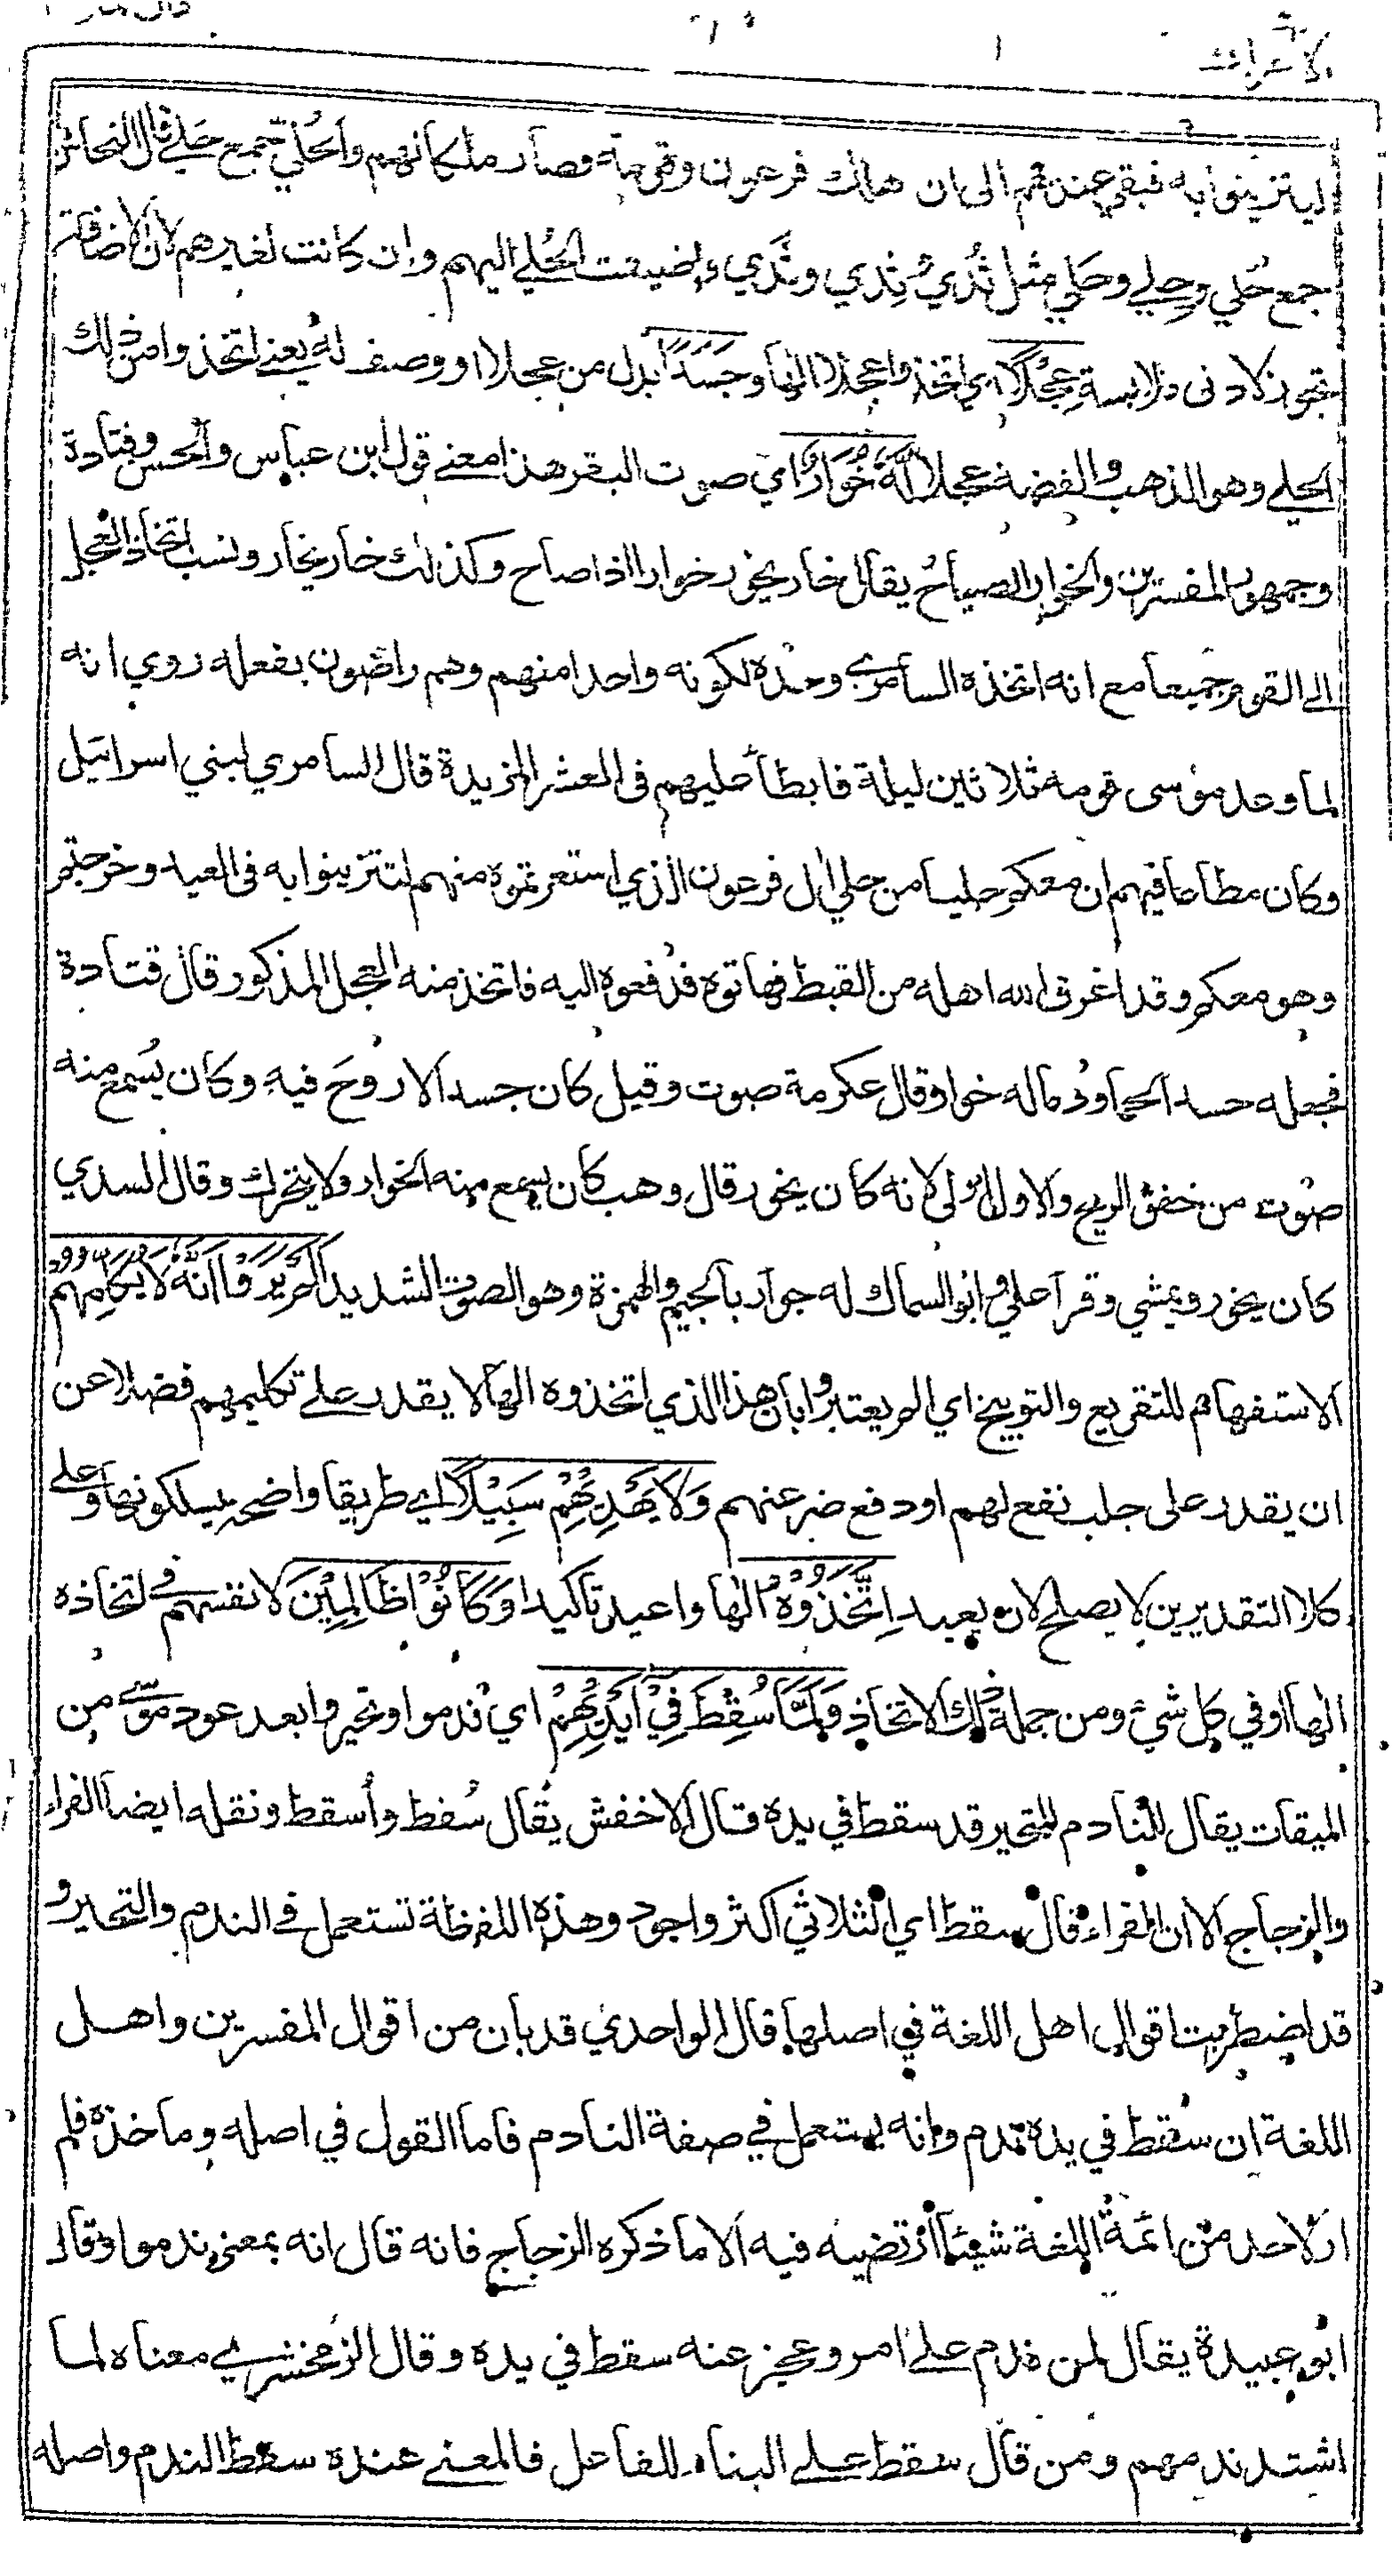 الاعراف
قال الملأ
ليتزينوا به فبقي عندهم الى ان هلك فرعون وقومه وصار ملكا لهم والحُلّي جمع حَلي قال النحاس
جمع حُلي وحِلي وحَلي مثل ثُدي وثِدي وثَدي واضيفت الحُلي اليهم وان كانت لغيرهم لان الاضافة
تجوز لادنى ملابسة عِجْلًا اي اتخذوا عجلا الها وجَسَدًا بدل من عجلا او وصف له يعني اتخذوا من ذلك
الحلي وهو الذهب والفضة عجلا لَّهٗ خُوَارٌ اي صوت البقر هذا معنى قول ابن عباس والحسن وقتادة
وجمهور المفسرين والخوار الصياح يقال خار يخور خوارا اذا صاح وكذلك خار يخار ونسب اتخاذ العجل
الى القوم جميعا مع انه اتخذه السامري وحده لكونه واحدا منهم وهم راضون بفعله روي انه
لما وعد موسى قومه ثلاثين ليلة فابطأ عليهم في العشر المزيدة قال السامري لبني اسرائيل
وكان مطاعا فيهم ان معكم حليا من حلي ال فرعون الذي استعرتموه منهم لتتزينوا به في العيد وخرجتم
وهو معكم وقد اغرق الله اهله من القبط فهاتوه فدفعوه اليه فاتخذ منه العجل المذكور قال قتادة
فجعله جسدا لحما ودما له خوار وقال عكرمة صوت وقيل كان جسدا لا روحَ فيه وكان يُسمع منه
صوت من خفق الريح والاول اولى لانه كان يخور قال وهب كان يسمع منه الخوار ولا يتحرك وقال السدي
كان يخور ويمشي وقرأ علي وابو السماك له جوار بالجيم والهمزة وهو الصوت الشديد اَلَمْ يَرَوْا اَنَّهٗ لَا يُكَلِّمُهُمْ
الاستفهام للتقريع والتوبيخ اي الم يعتبروا بان هذا الذي اتخذوه الها لا يقدر على تكليمهم فضلا عن
ان يقدر على جلب نفع لهم او دفع ضر عنهم وَلَا يَهْدِيْهِمْ سَبِيْلًا اي طريقا واضحة يسلكونها وعلى
كلا التقديرين لا يصلح لان يعبد اِتَّخَذُوْهُ الها واعيد تاكيدا وَكَانُوْا ظَالِمِيْنَ لانفسهم في اتخاذه
الها او في كل شيء ومن جملة ذلك الاتخاذ وَلَمَّا سُقِطَ فِيْ اَيْدِيْهِمْ اي ندموا وتحيروا بعد عود موسى من
الميقات يقال للنادم المتحير قد سقط في يده قال الاخفش يقال سُقط وأُسقط ونقله ايضا الفراء
والزجاج الا ان الفراء قال سقط اي الثلاثي اكثر واجود وهذه اللفظة تستعمل في الندم والتحير و
قد اضطربت اقوال اهل اللغة في اصلها قال الواحدي قد بان من اقوال المفسرين واهل
اللغة ان سُقط في يده ندم وانه يستعمل في صفة النادم فاما القول في اصله وماخذه فلم
ار لاحد من ائمة اللغة شيئا ارتضيه فيه الا ما ذكره الزجاج فانه قال انه بمعنى ندموا وقال
ابو عبيدة يقال لمن ندم على امر وعجز عنه سقط في يده وقال الزمخشري معناه لما
اشتد ندمهم ومن قال سقط على البناء للفاعل فالمعنى عنده سقط الندم واصله